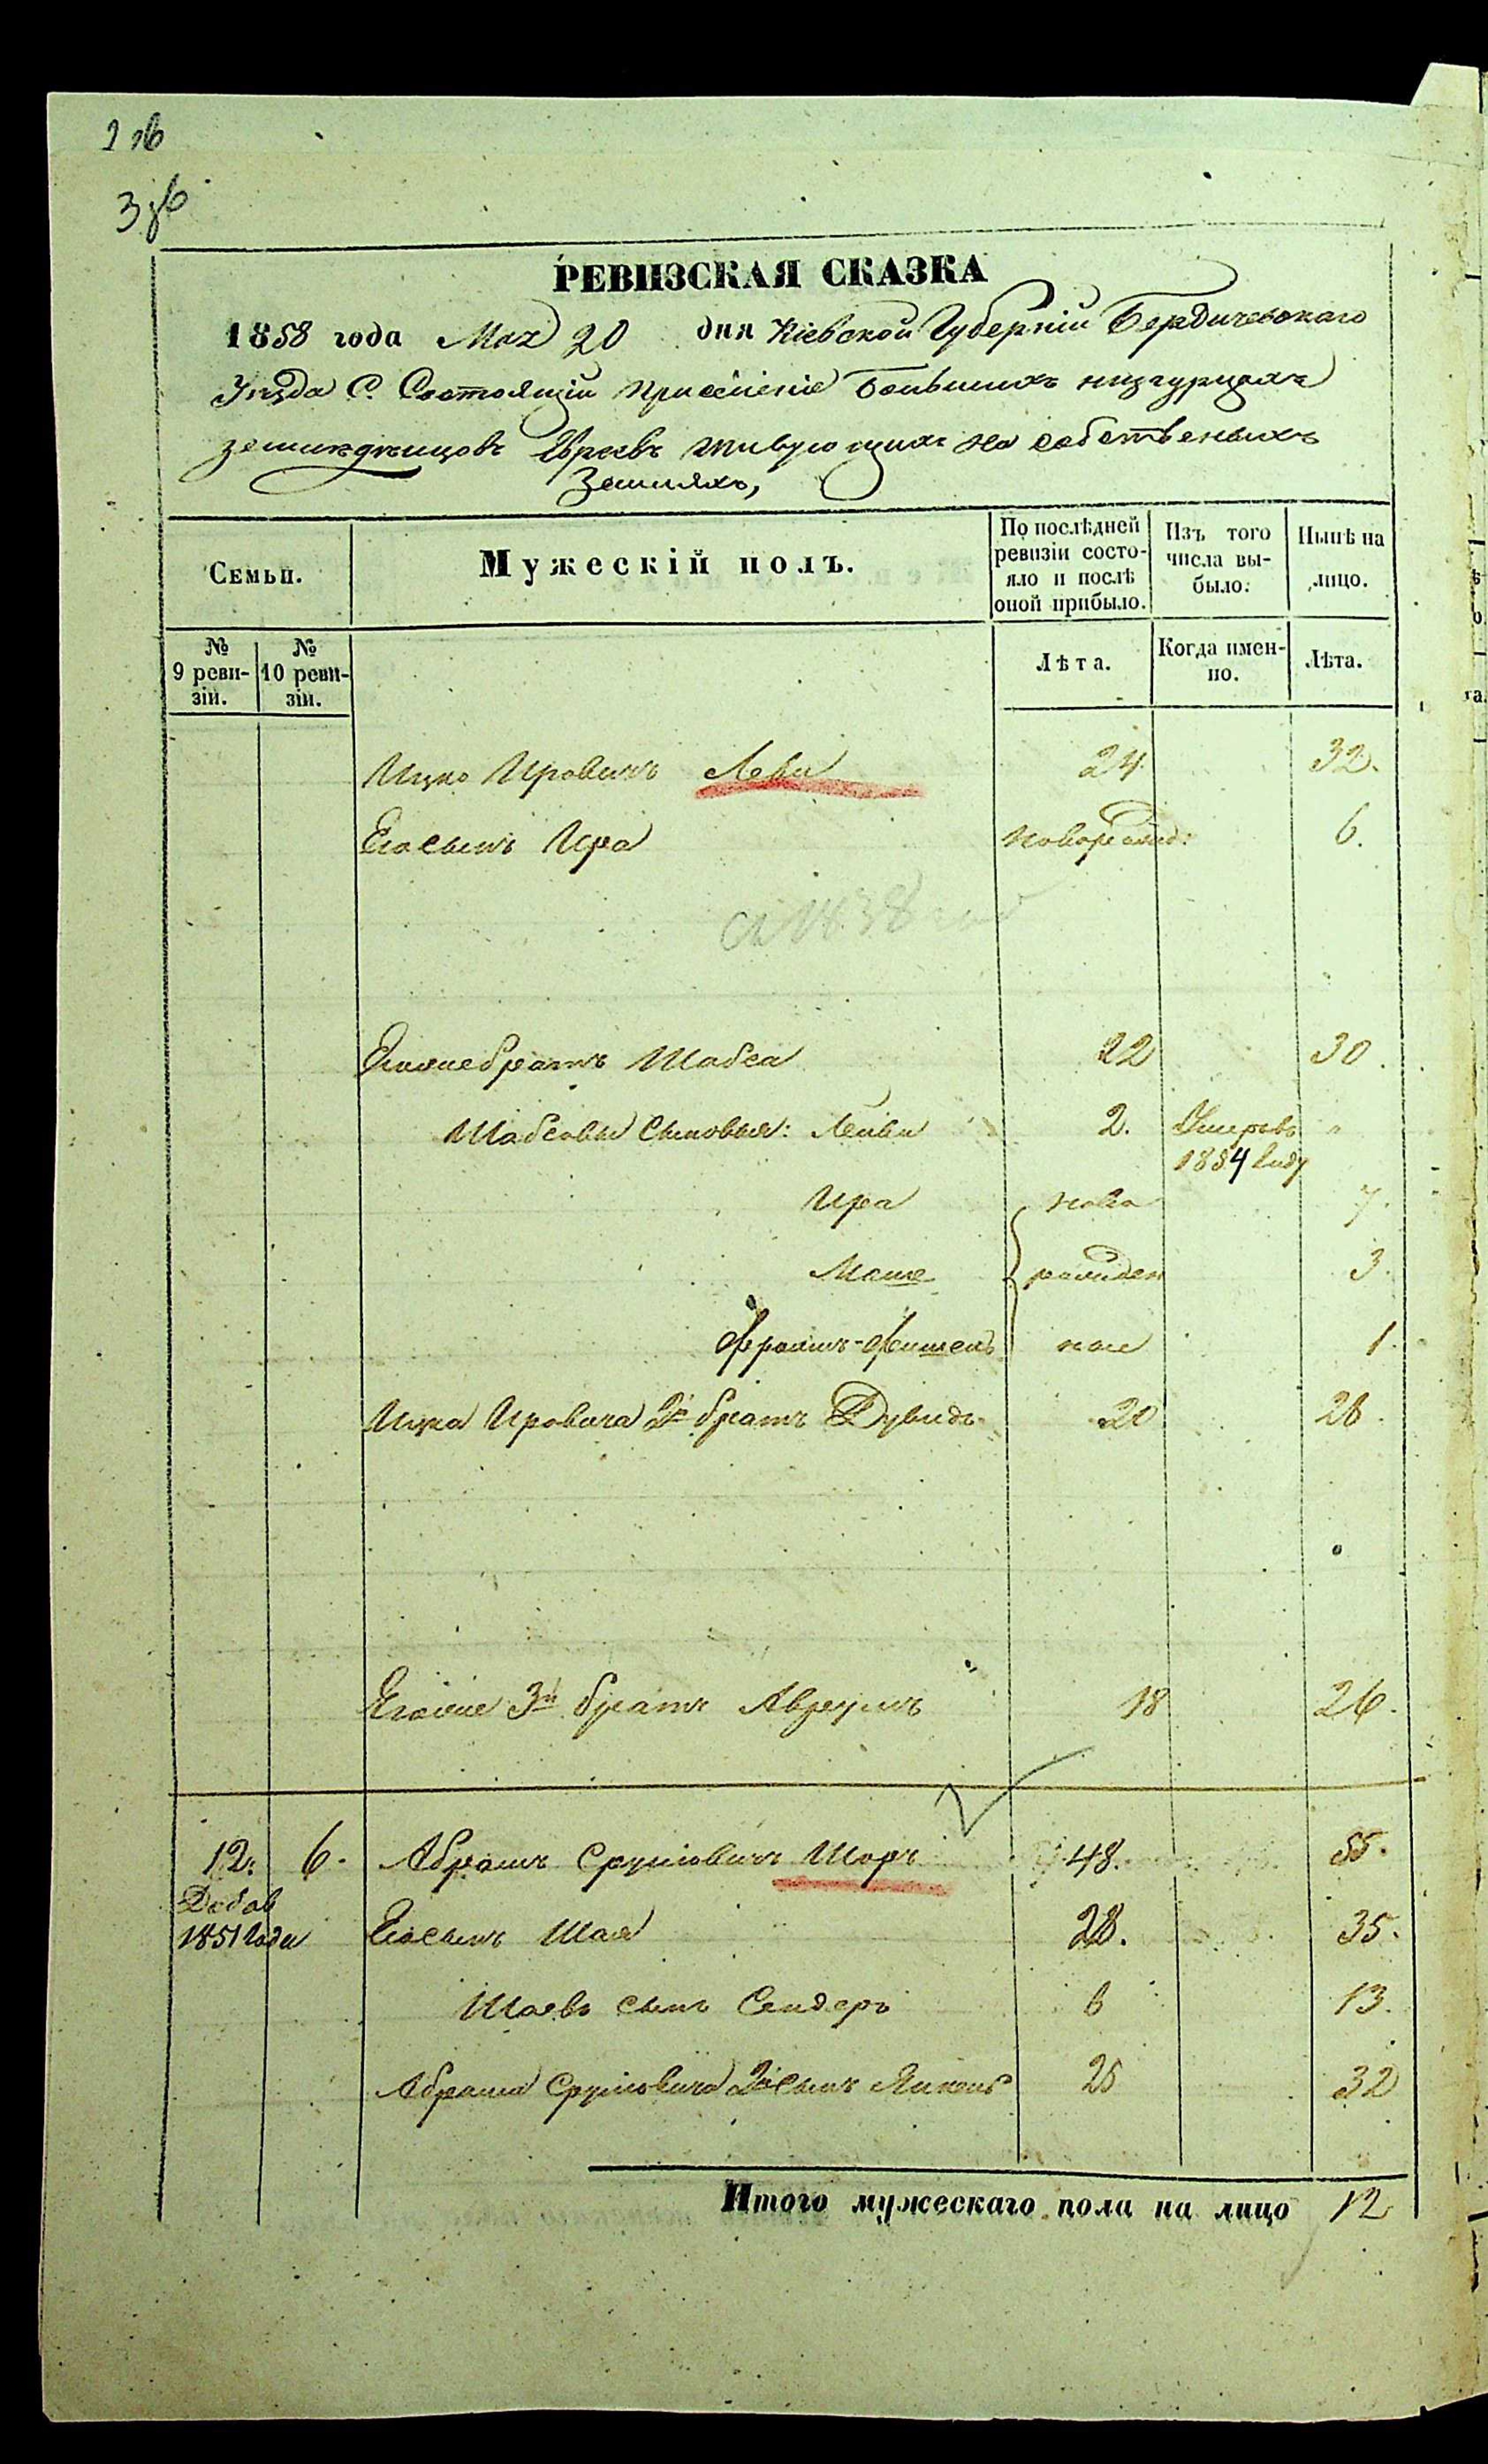 3 ж
РЕВИЗСКАЯ СКАЗКА
1858 года Мая 20 дня Кіевской Губерніи Бердичевскаго
Уѣзда С. Состоящіи при селеніе Большихъ Низгурцахъ
земледѣльцовъ Евреевъ живующихъ на собственыхъ
Земляхъ,
Семьи. Мужескій полъ. По послѣдней ревизіи состо-яло и послѣ оной прибыло. Изъ того числа вы-было. Нынѣ на лицо.
№ 9 реви-зіи. № 10 реви-зіи. Лѣта. Когда имен-но. Лѣта.
Ицко Ировичъ Леви 24 32.
Его сынъ Ира новорожд: 6.
1838
Его же братъ Шабса 22 30.
Шабсовы сыновья: Лейви 2. Умеръ въ "
1854 году
Ира ново 7.
Моше рожден 3.
Фроимъ-Фишель ные 1.
Ицка Ировича 2й братъ Дувидъ 20 28.
Его же 3й братъ Аврумъ 18 26.
12. 6. Абрамъ Срулiовичъ Шоръ 48. 55.
Добав
1851 Года Его сынъ Шая 28. 35.
Шаевъ сынъ Сендеръ 6 13.
Абрама Срулiовича 2й сынъ Янкель 25 32
Итого мужескаго пола на лицо 12